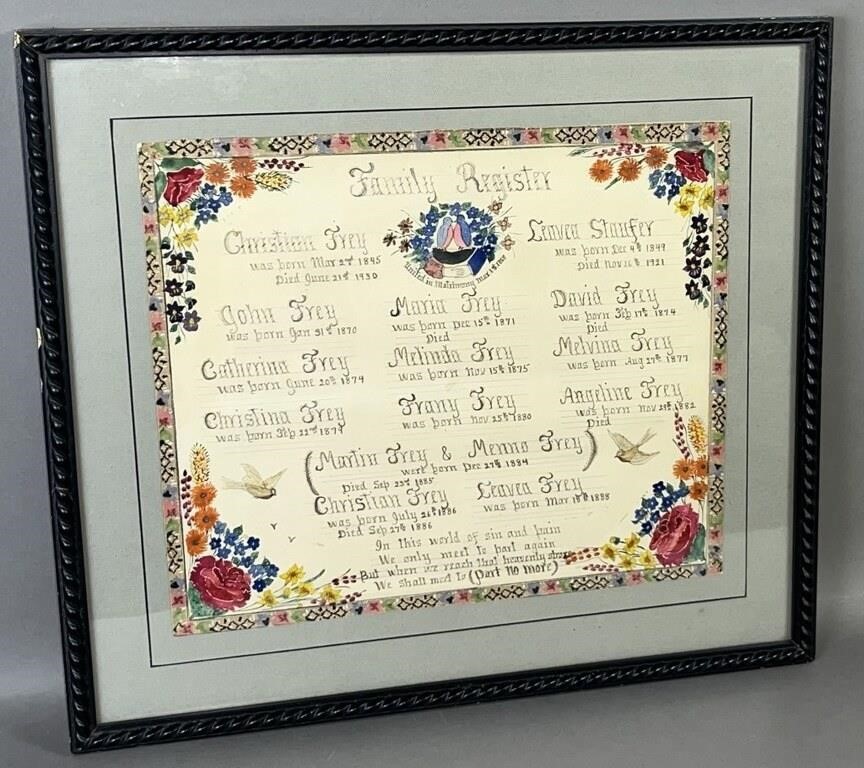 Family Register
Christian Frey
was born Mar 2nd 1845
Died June 21st 1930
United in Matrimony Mar
Leavea Staufer
was born Dec 4th 1849
Died Nov 16th 1921
John Frey
was born Jan 31st 1870
Maria Frey
was born Dec 15th 1871
Died
David Frey
was born Feb 17th 1874
Died
Catherina Frey
was born June 20th 1874
Melinda Frey
was born Nov 15th 1875
Melvina Frey
was born Aug 27th 1877
Christina Frey
was born Feb 22nd 1879
Frany Frey
was born Nov 25th 1880
Angeline Frey
was born Nov 21st 1882
Died
(Martin Frey & Menno Frey)
were born Dec 27th 1884
Died Sep 23rd 1885
Christian Frey
was born July 26th 1886
Died Sep 27th 1886
Leavea Frey
was born Mar 18th 1888
In this world of sin and pain
We only meet to part again
But when we reach that heavenly shore
We shall meet to (Part no more)